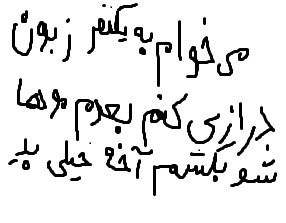 می‌خوام به یکنفر زبون
درازی کنم بعدم موها
شو بکشم آخه خیلی بد